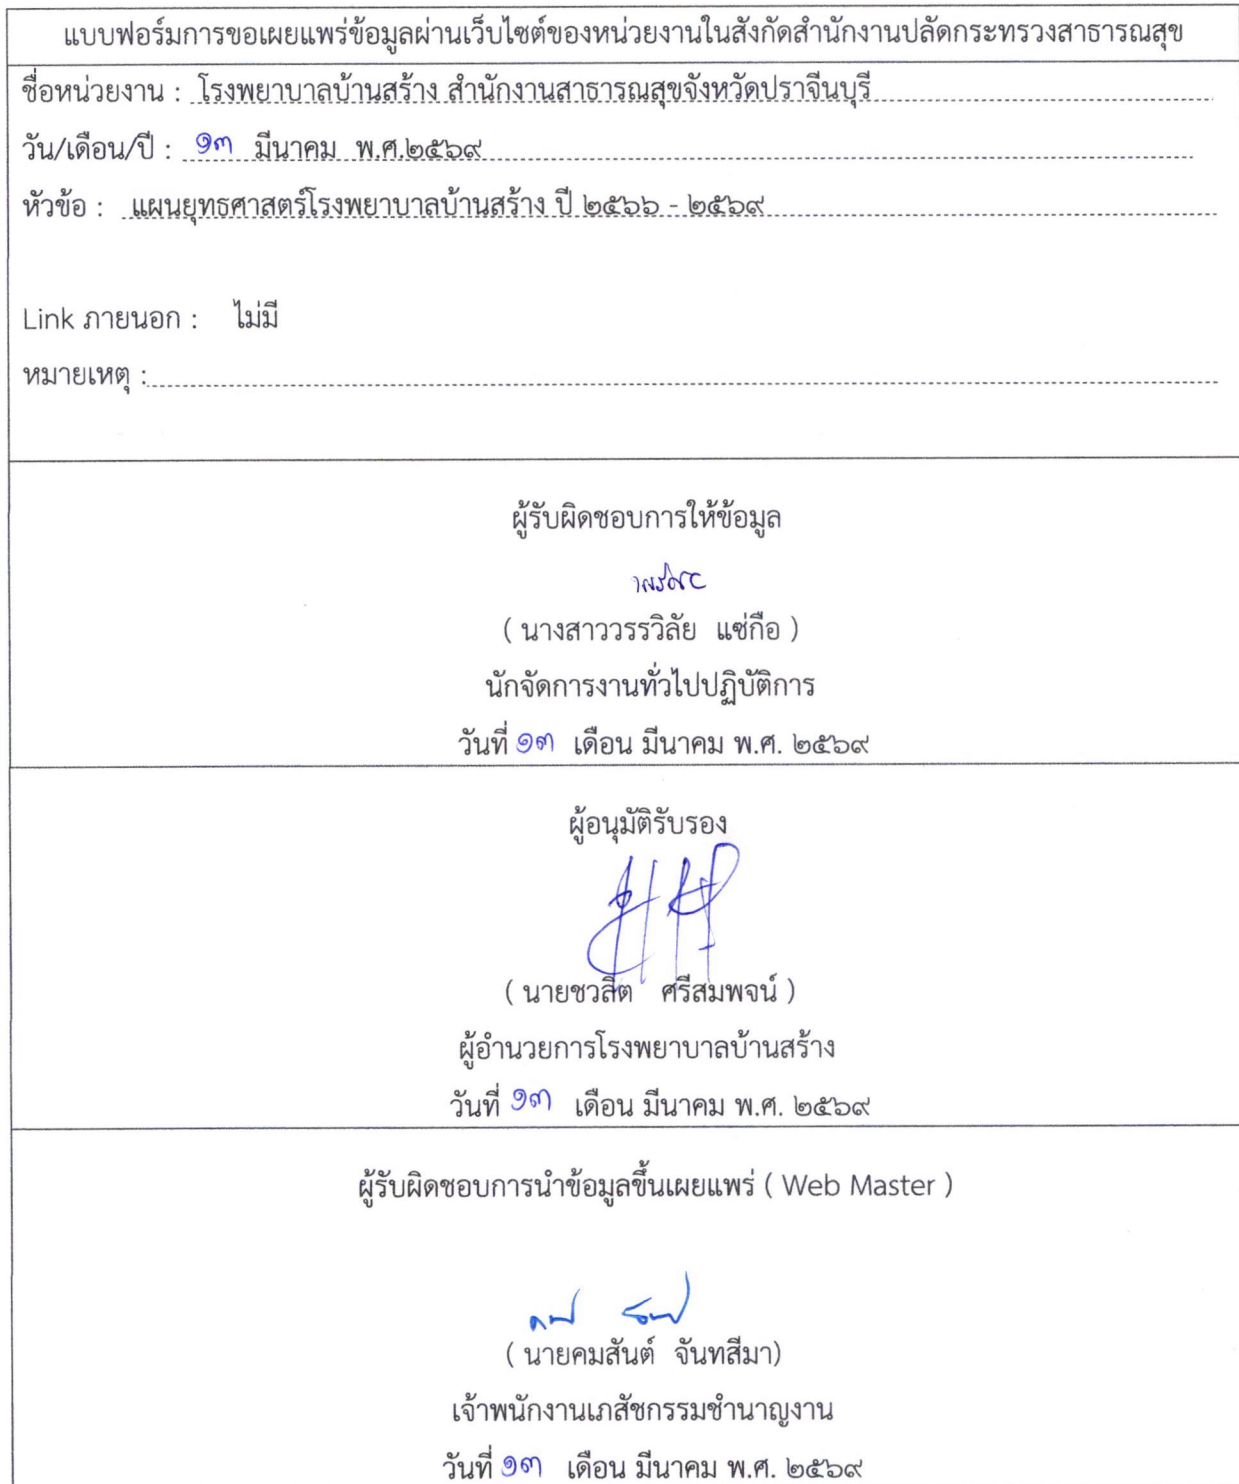 แบบฟอร์มการขอเผยแพร่ข้อมูลผ่านเว็บไซต์ของหน่วยงานในสังกัดสำนักงานปลัดกระทรวงสาธารณสุข
ชื่อหน่วยงาน : โรงพยาบาลบ้านสร้าง สำนักงานสาธารณสุขจังหวัดปราจีนบุรี
วัน/เดือน/ปี : ๑๓ มีนาคม พ.ศ.๒๕๖๙
หัวข้อ : แผนยุทธศาสตร์โรงพยาบาลบ้านสร้าง ปี ๒๕๖๖ - ๒๕๖๙
Link ภายนอก : ไม่มี
หมายเหตุ :
ผู้รับผิดชอบการให้ข้อมูล
( นางสาววรรวิลัย แซ่กือ )
นักจัดการงานทั่วไปปฏิบัติการ
วันที่ ๑๓ เดือน มีนาคม พ.ศ. ๒๕๖๙
ผู้อนุมัติรับรอง
( นายชวลิต ศรีสมพจน์ )
ผู้อำนวยการโรงพยาบาลบ้านสร้าง
วันที่ ๑๓ เดือน มีนาคม พ.ศ. ๒๕๖๙
ผู้รับผิดชอบการนำข้อมูลขึ้นเผยแพร่ ( Web Master )
( นายคมสันต์ จันทสีมา)
เจ้าพนักงานเภสัชกรรมชำนาญงาน
วันที่ ๑๓ เดือน มีนาคม พ.ศ. ๒๕๖๙